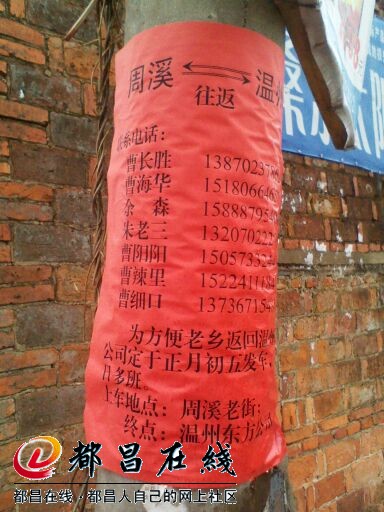 周溪 ⟷ 温
往返
联系电话：
曹长胜 138702378
曹海华 1518066463
余 森 1588879548
朱老三 132070222
曹阳阳 150573322
曹辣里 152241184
曹细口 137367154
为方便老乡返回温
公司定于正月初五发车，
日多班。
上车地点：周溪老街；
终点：温州东方公
都昌在线
都昌在线·都昌人自己的网上社区